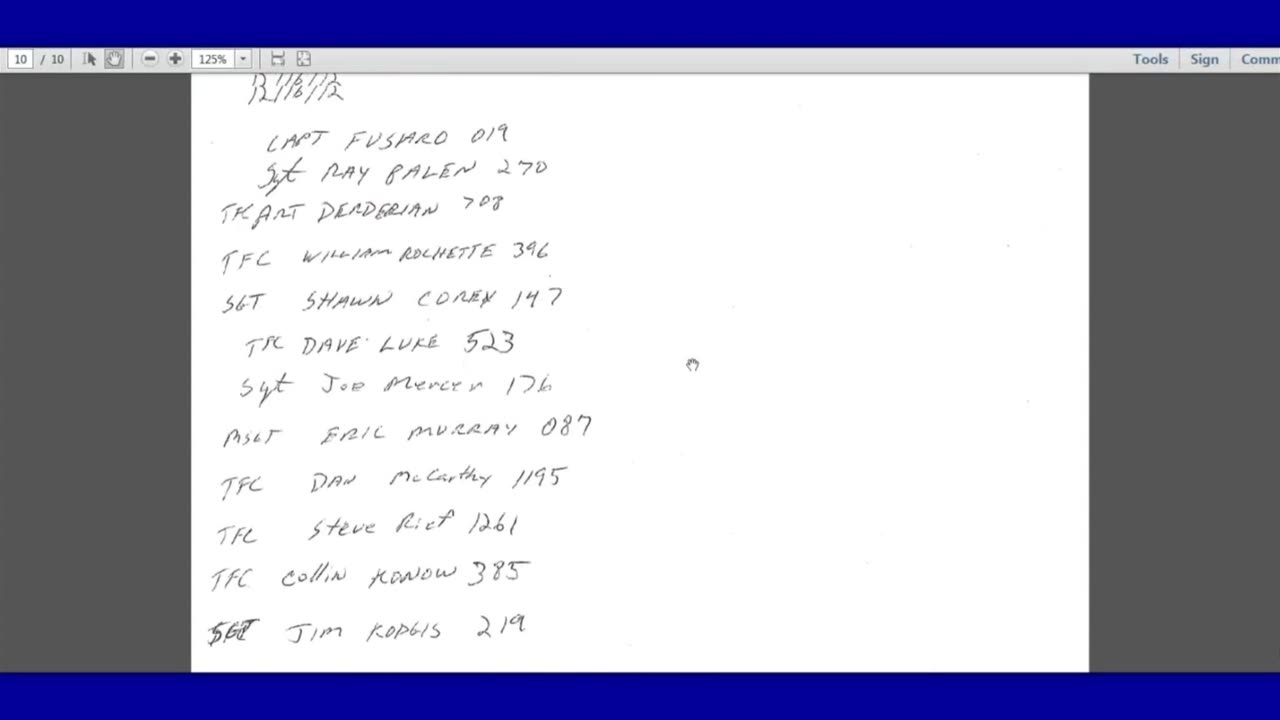 10 / 10 125% Tools Sign Comm
12/16/12
CAPT FUSARO 019
Sgt RAY BALEN 270
TFC ART DERDERIAN 708
TFC WILLIAM ROCHETTE 396
SGT SHAWN COREY 147
TFC DAVE LUKE 523
Sgt Joe Mercer 176
MSGT ERIC MURRAY 087
TFC DAN McCarthy 1195
TFC Steve Rief 1261
TFC Collin KONOW 385
SGT JIM KODGIS 219